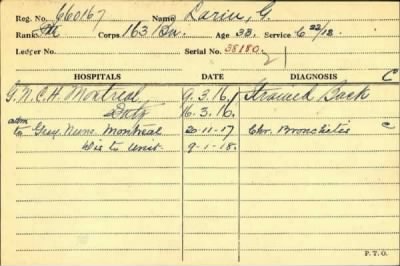 Reg. No. 660167 Name Larin, G.
Rank Pte Corps 163 Bn. Age 38. Service 6 22/12.
Ledger No. Serial No. 38180
HOSPITALS DATE DIAGNOSIS C
G.N.C.H. Montreal 9.3.16 Strained Back
Duty 16.3.16.
adm to Grey Nuns. Montreal 20-11-17 Chr. Bronchitis C
Dis to Unit 9-1-18.
P. T. O.